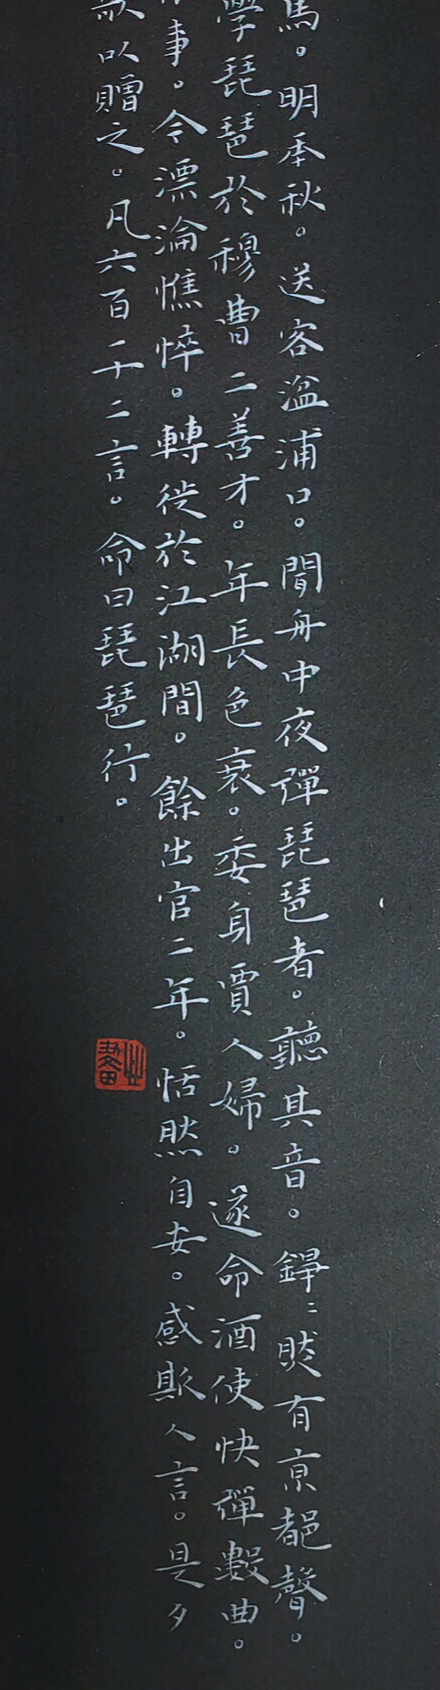 馬。明年秋。送客湓浦口。聞舟中夜彈琵琶者。聽其音。錚〻然有京都聲。
學琵琶於穆曹二善才。年長色衰。委身賈人婦。遂命酒使快彈數曲。
事。今漂淪憔悴。轉徙於江湖間。餘出官二年。恬然自安。感斯人言。是夕
歌以贈之。凡六百十二言。命曰琵琶行。